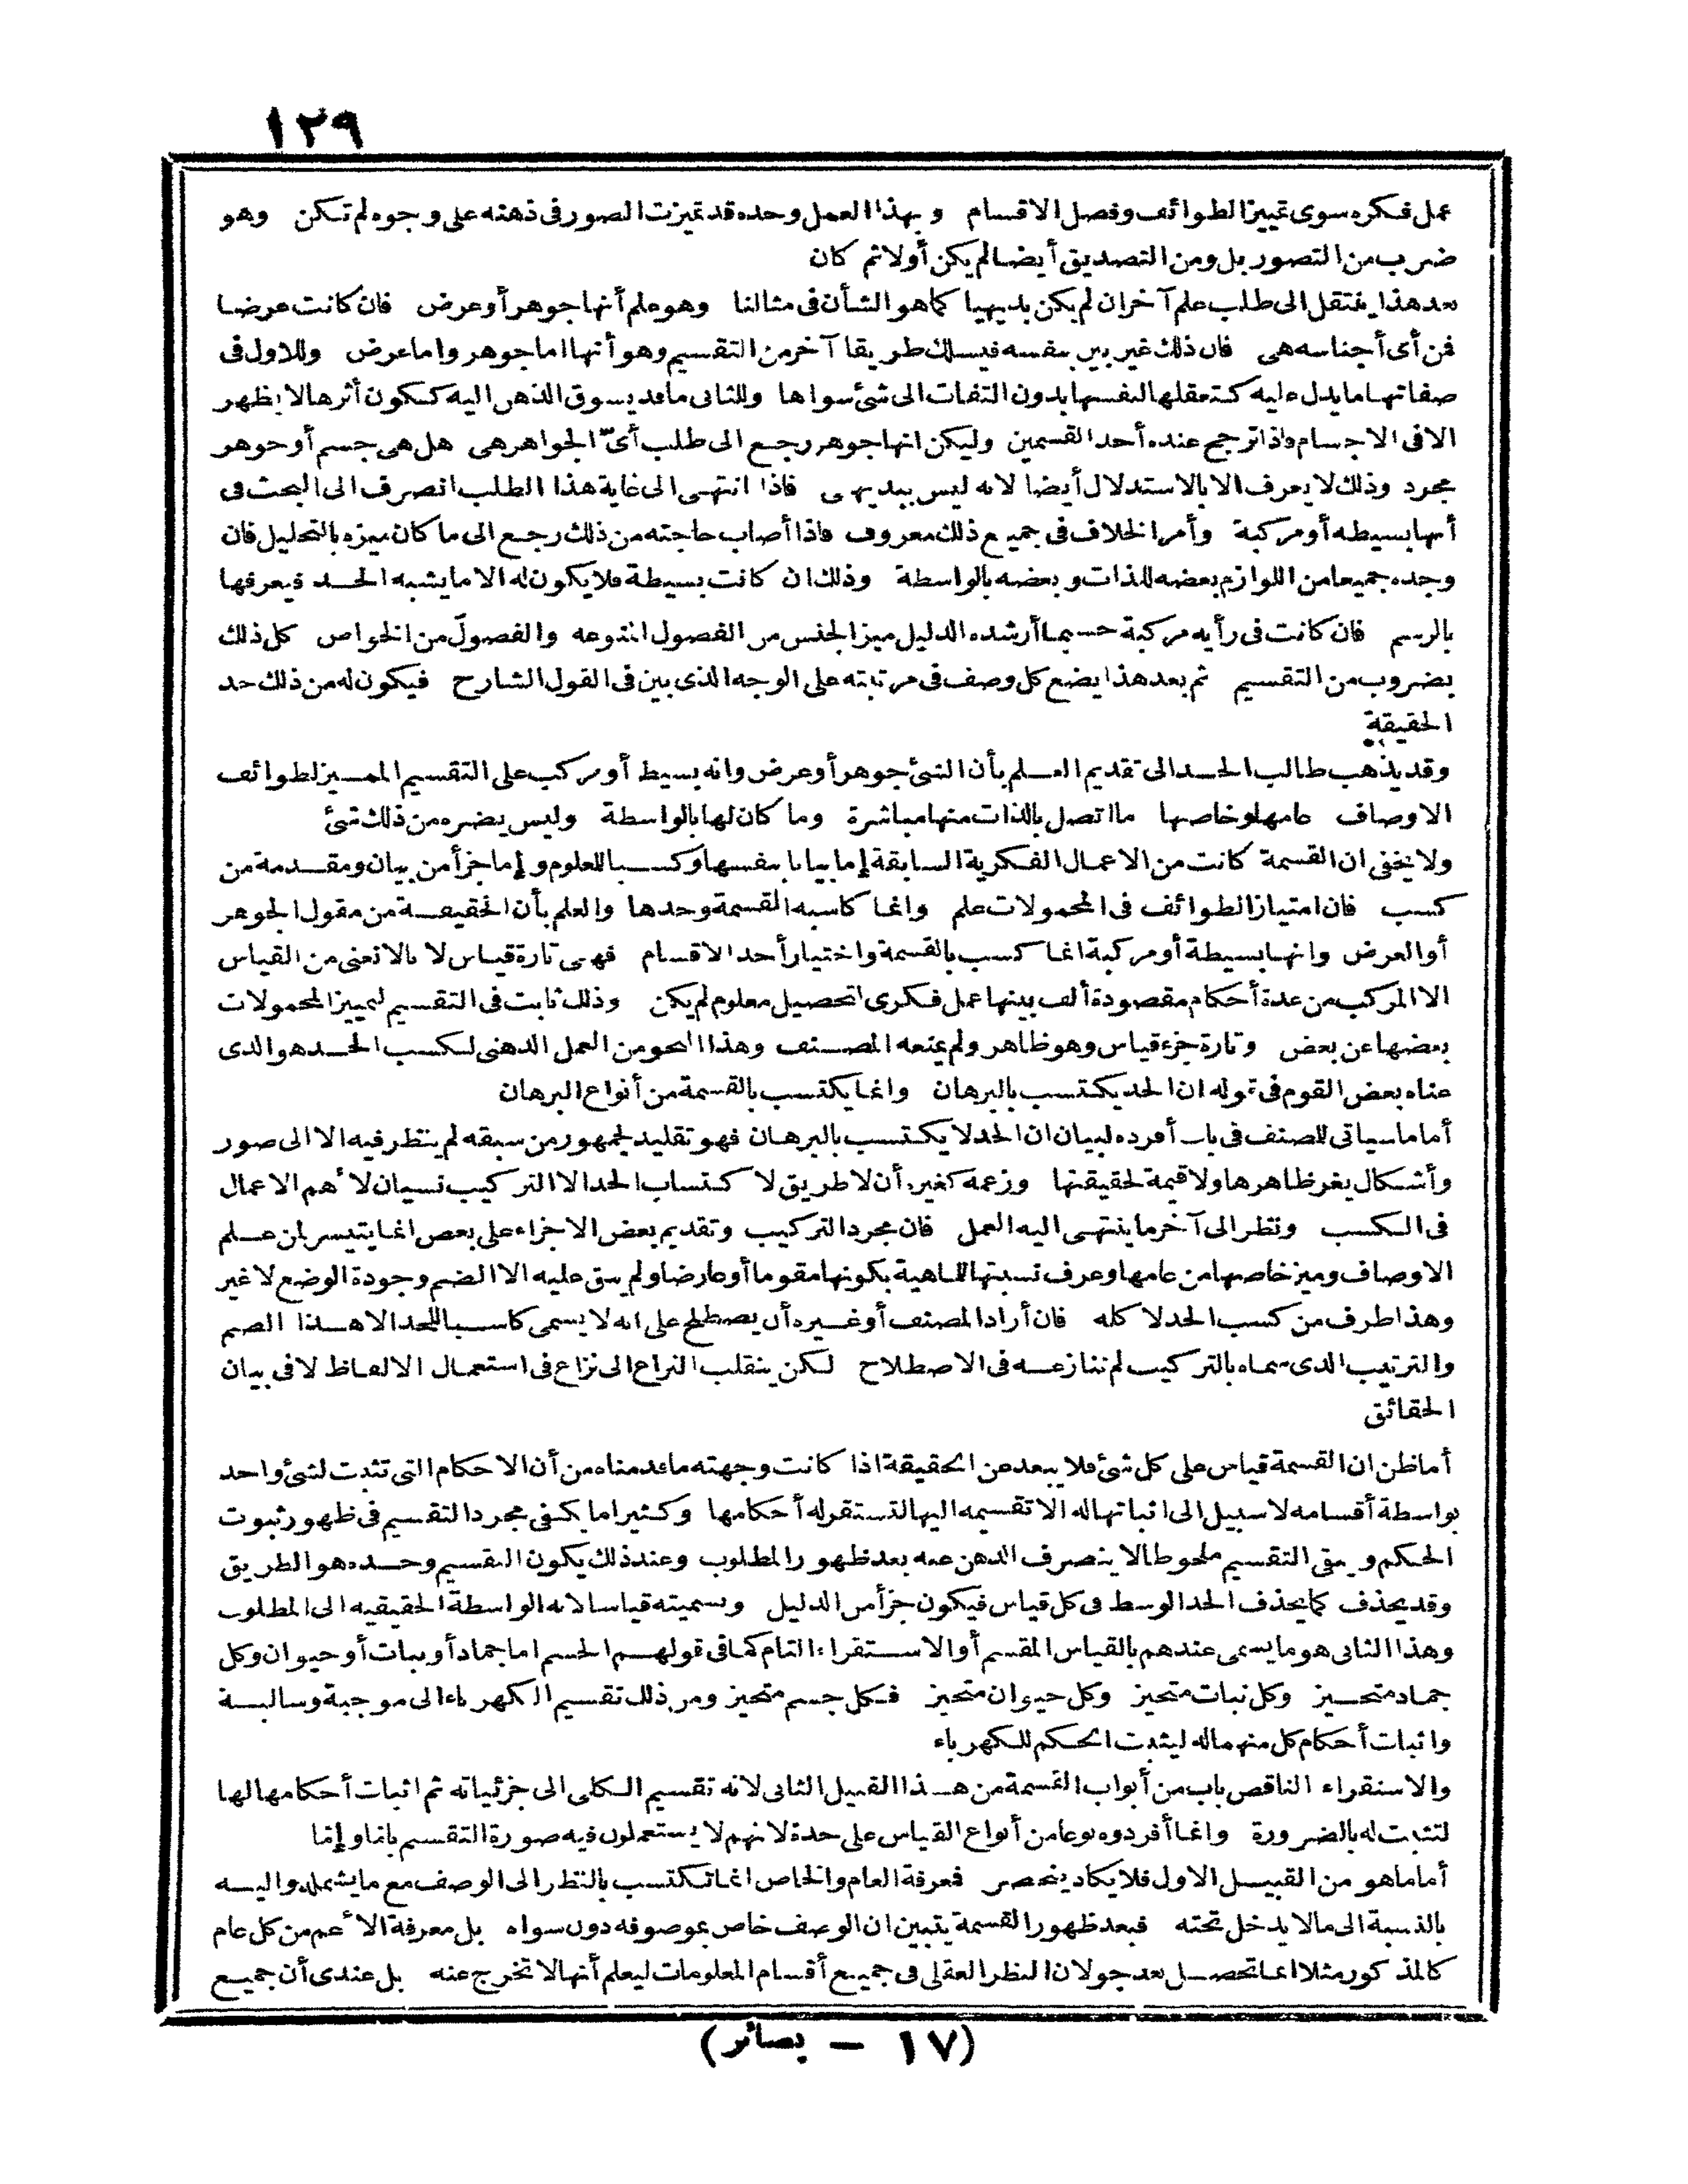 ١٢٩
عمل فكره سوى تمييز الطوائف وفصل الاقسام وبهذا العمل وحده قد تميزت الصور فى ذهنه على وجوه لم تكن وهو
ضرب من التصور بل ومن التصديق أيضا لم يكن أولا ثم كان
بعد هذا ينتقل الى طلب علم آخر ان لم يكن بديهيا كما هو الشأن فى مثالنا وهو علم أنها جوهر أو عرض فان كانت عرضا
فمن أى أجناسه هى فان ذلك غير بين بنفسه فيسلك طريقا آخر من التقسيم وهو أنها اما جوهر واما عرض وللاول فى
صفاتها ما يدل عليه كتعقلها لنفسها بدون التفات الى شئ سواها وللثانى ما قد يسوق الذهن اليه ككون أثرها لا يظهر
الا فى الاجسام فاذا ترجح عنده أحد القسمين وليكن انها جوهر رجع الى طلب أىّ الجواهر هى هل هى جسم أو جوهر
مجرد وذلك لا يعرف الا بالاستدلال أيضا لانه ليس ببديهى فاذا انتهى الى غاية هذا الطلب انصرف الى البحث فى
أنها بسيطه أو مركبة وأمر الخلاف فى جميع ذلك معروف فاذا أصاب حاجته من ذلك رجع الى ما كان ميزه بالتحليل فان
وجده جميعا من اللوازم بعضه للذات وبعضه بالواسطة وذلك ان كانت بسيطة فلا يكون له الا ما يشبه الحد فيعرفها
بالرسم فان كانت فى رأيه مركبة حسبما أرشده الدليل ميز الجنس من الفصول المنوعه والفصول من الخواص كل ذلك
بضروب من التقسيم ثم بعد هذا يضع كل وصف فى مرتبته على الوجه الذى بين فى القول الشارح فيكون له من ذلك حد
الحقيقة
وقد يذهب طالب الحد الى تقديم العلم بأن الشئ جوهر أو عرض وانه بسيط أو مركب على التقسيم المميز لطوائف
الاوصاف عامها وخاصها ما اتصل بالذات منها مباشرة وما كان لها بالواسطة وليس يضره من ذلك شئ
ولا يخفى ان القسمة كانت من الاعمال الفكرية السابقة إما بيانا بنفسها وكسبا للعلوم وإما جزأ من بيان ومقدمة من
كسب فان امتياز الطوائف فى المحمولات علم وانما كاسبه القسمة وحدها والعلم بأن الحقيقة من مقول الجوهر
أو العرض وانها بسيطة أو مركبة انما كسب بالقسمة واختيار أحد الاقسام فهى تارة قياس لا نالا نعنى من القياس
الا المركب من عدة أحكام مقصودة ألف بينها عمل فكرى لتحصيل معلوم لم يكن وذلك ثابت فى التقسيم لتمييز المحمولات
بعضها عن بعض وتارة جزء قياس وهو ظاهر ولم يمنعه المصنف وهذا النحو من العمل الذهنى لكسب الحد هو الذى
عناه بعض القوم فى قوله ان الحد يكتسب بالبرهان وانما يكتسب بالقسمة من أنواع البرهان
أما ما سيأتى للمصنف فى باب أفرده لبيان ان الحد لا يكتسب بالبرهان فهو تقليد لجمهور من سبقه لم ينظر فيه الا الى صور
وأشكال يغر ظاهرها ولا قيمة لحقيقتها وزعمه كغيره أن لا طريق لاكتساب الحد الا التركيب نسيان لأهم الاعمال
فى الكسب ونظر الى آخر ما ينتهى اليه العمل فان مجرد التركيب وتقديم بعض الاجزاء على بعض انما يتيسر لمن علم
الاوصاف وميز خاصها من عامها وعرف نسبتها للماهية بكونها مقوما أو عارضا ولم يبق عليه الا الضم وجودة الوضع لا غير
وهذا طرف من كسب الحد لا كله فان أراد المصنف أو غيره أن يصطلح على انه لا يسمى كاسبا للحد الا هذا الضم
والترتيب الذى سماه بالتركيب لم ننازعه فى الاصطلاح لكن ينقلب النزاع الى نزاع فى استعمال الالفاظ لا فى بيان
الحقائق
أما ظن ان القسمة قياس على كل شئ فلا يبعد عن الحقيقة اذا كانت وجهته ما قدمناه من أن الاحكام التى تثبت لشئ واحد
بواسطة أقسامه لا سبيل الى اثباتها له الا تقسيمه اليها لتستقر له أحكامها وكثيرا ما يكفى مجرد التقسيم فى ظهور ثبوت
الحكم ويبقى التقسيم ملحوظا لا ينصرف الذهن عنه بعد ظهور المطلوب وعند ذلك يكون التقسيم وحده هو الطريق
وقد يحذف كما يحذف الحد الوسط فى كل قياس فيكون جزأ من الدليل وتسميته قياسا لانه الواسطة الحقيقيه الى المطلوب
وهذا الثانى هو ما يسمى عندهم بالقياس المقسم أو الاستقراء التام كما فى قولهم الجسم اما جماد أو نبات أو حيوان وكل
جماد متحيز وكل نبات متحيز وكل حيوان متحيز فكل جسم متحيز ومن ذلك تقسيم الكهرباء الى موجبة وسالبة
واثبات أحكام كل منهما له ليثبت الحكم للكهرباء
والاستقراء الناقص باب من أبواب القسمة من هذا القبيل الثانى لانه تقسيم الكلى الى جزئياته ثم اثبات أحكامها لها
لتثبت له بالضرورة وانما أفردوه نوعا من أنواع القياس على حدة لانهم لا يستعملون فيه صورة التقسيم بامّا وإمّا
أما ما هو من القبيل الاول فلا يكاد ينحصر فمعرفة العام والخاص انما تكتسب بالنظر الى الوصف مع ما يشمله واليه
بالنسبة الى ما لا يدخل تحته فبعد ظهور القسمة يتبين ان الوصف خاص بموصوفه دون سواه بل معرفة الأعم من كل عام
كالمذكور مثلا انما تحصل بعد جولان النظر العقلى فى جميع أقسام المعلومات ليعلم أنها لا تخرج عنه بل عندى أن جميع
(١٧ – بصائر)